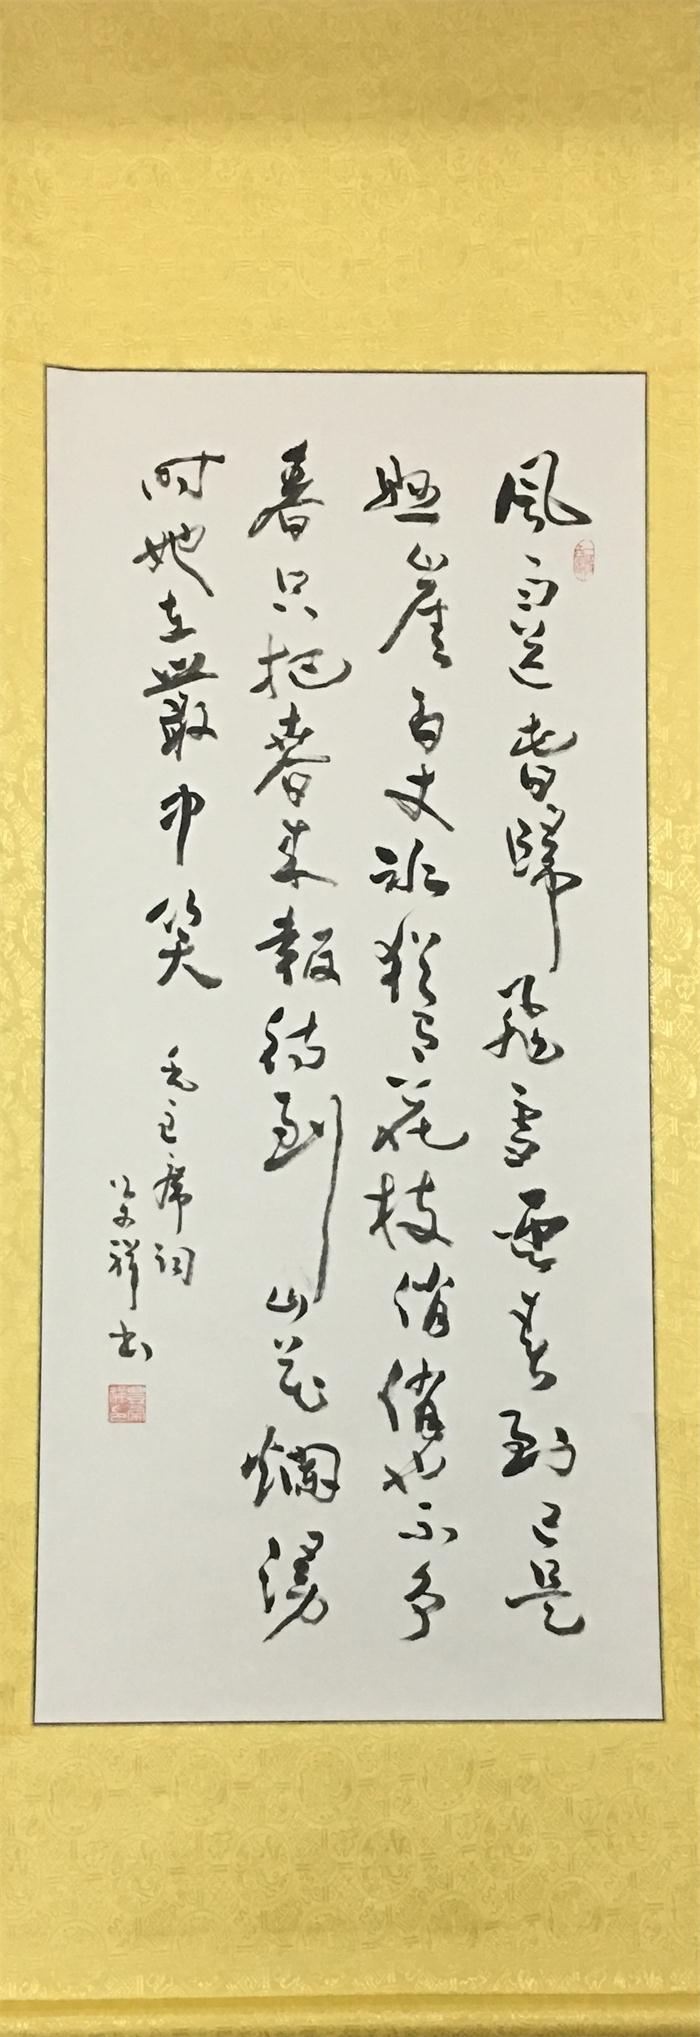 風雨送春歸飛雪迎春到已是
懸崖百丈冰猶有花枝俏俏也不争
春只把春来報待到山花爛漫
时她在叢中笑
毛主席词
祥书